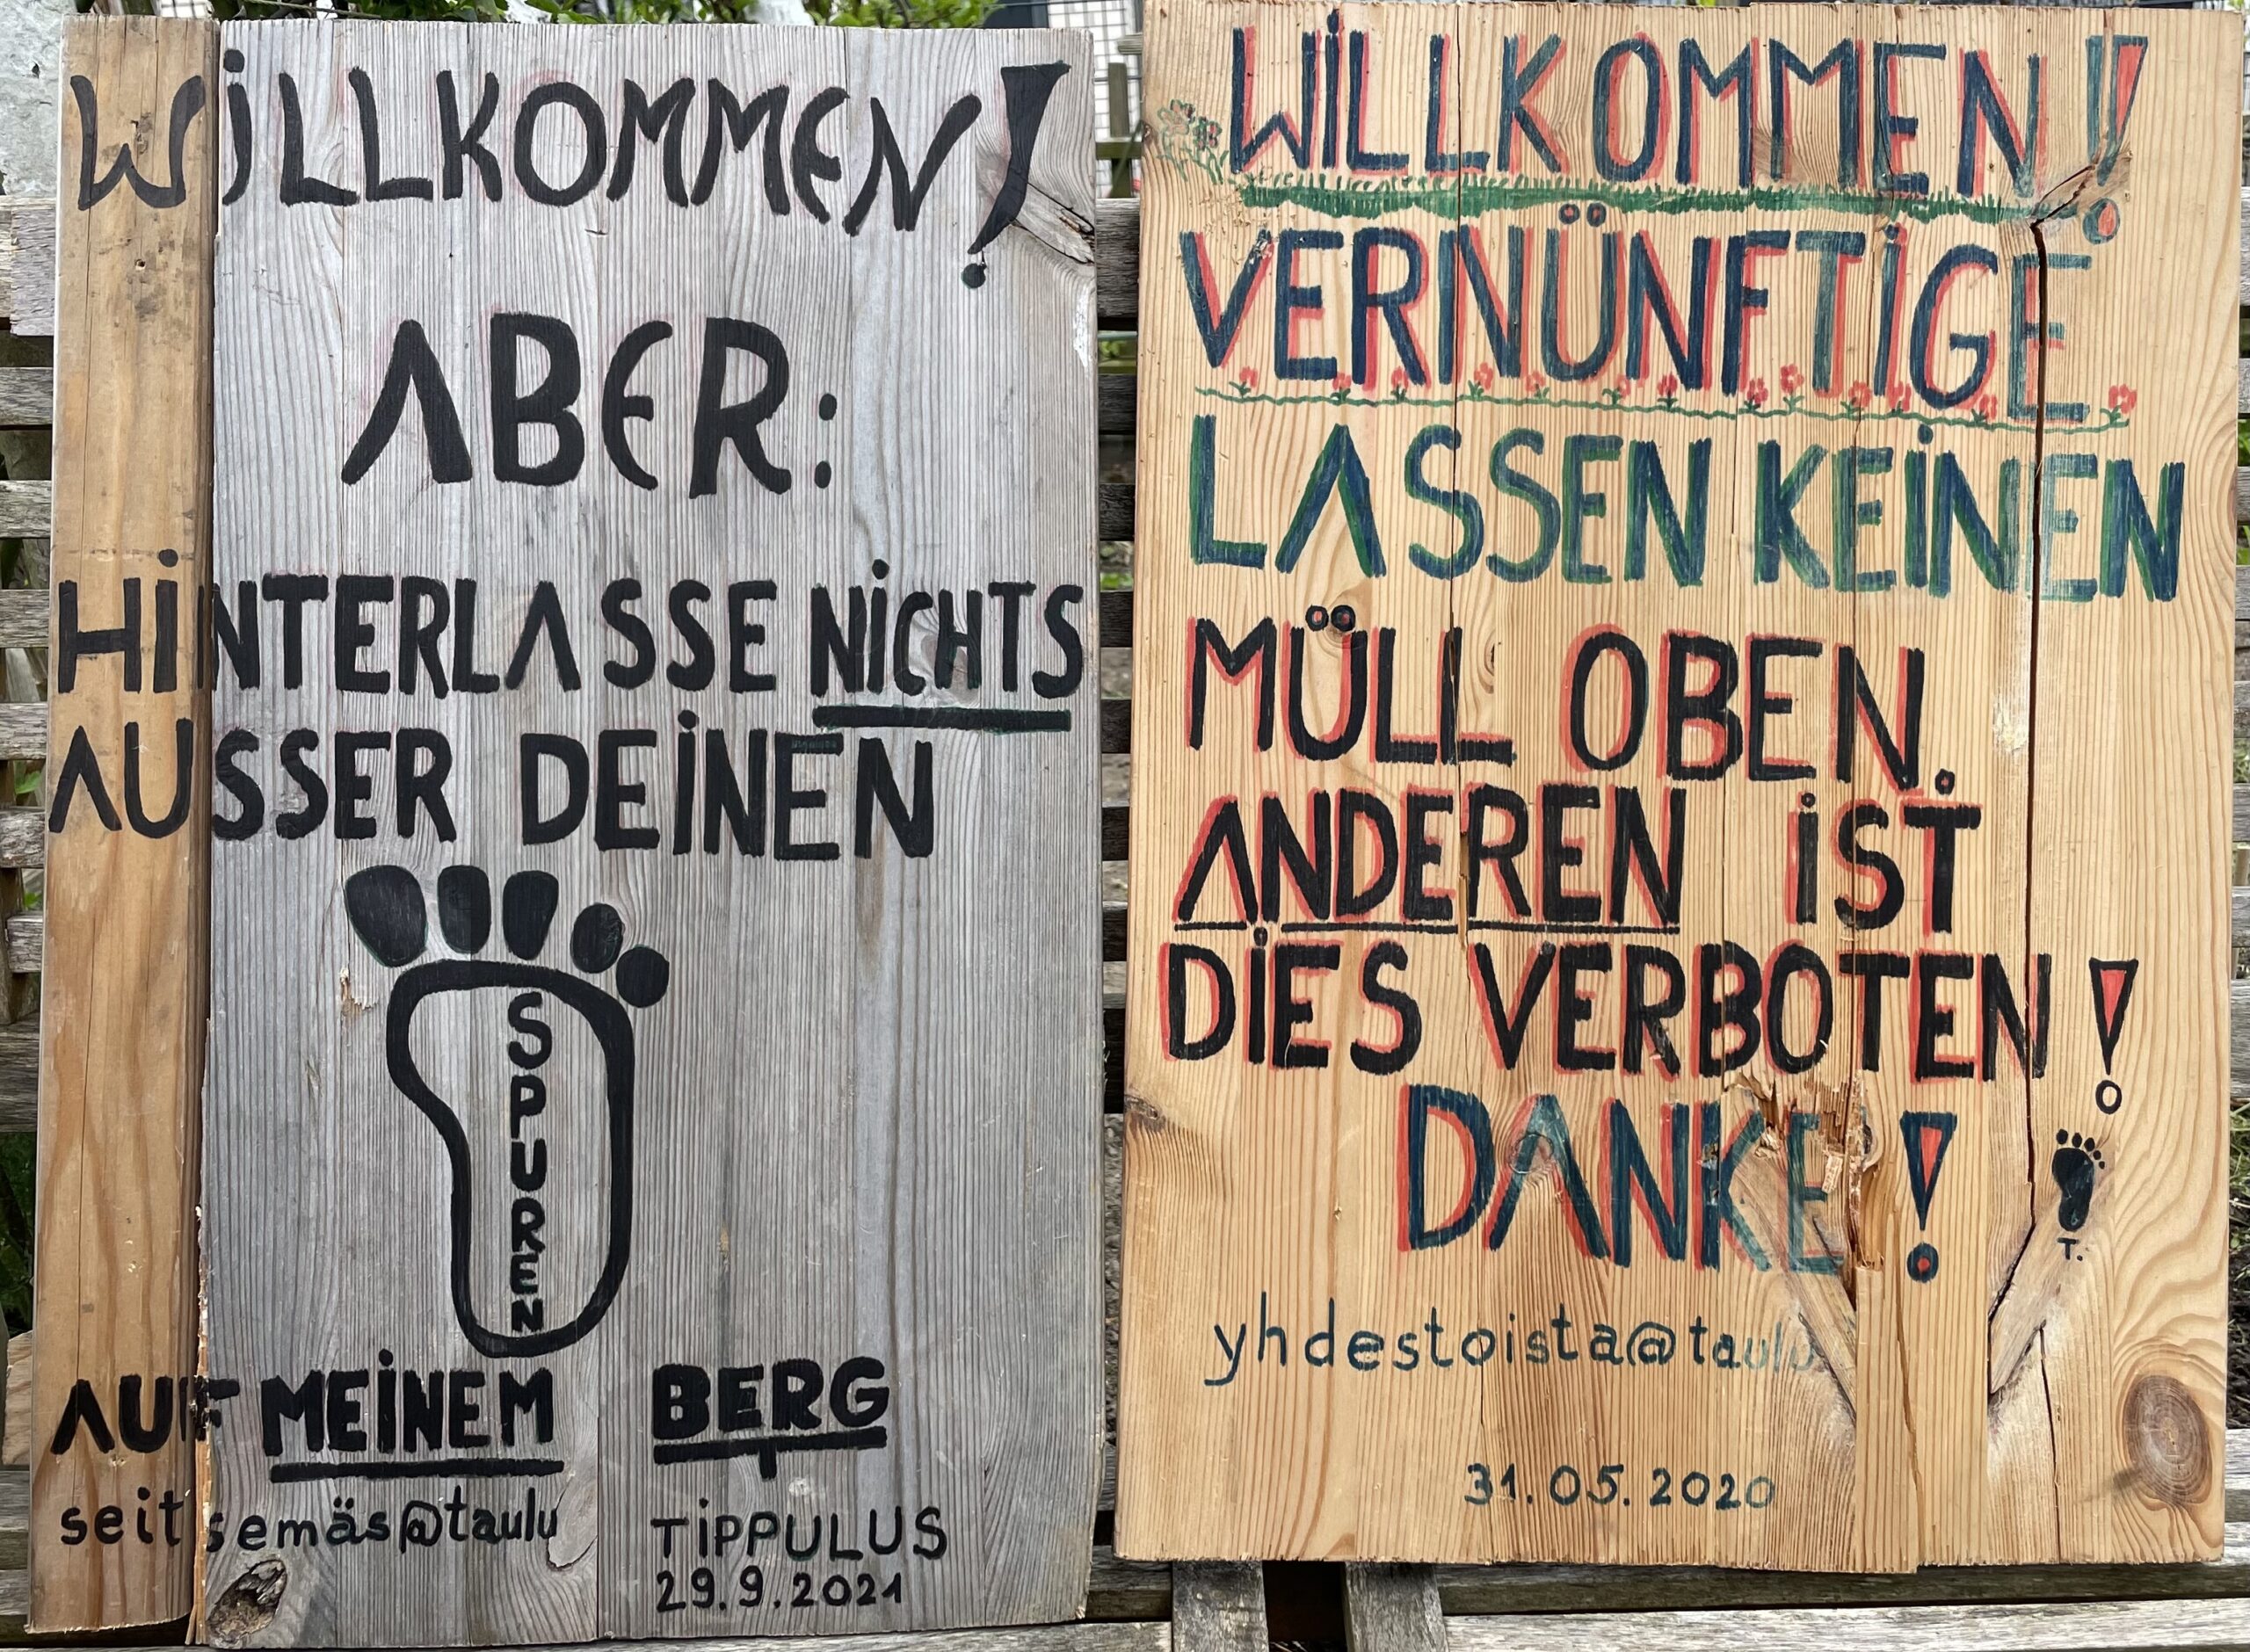 WILLKOMMEN!
ABER:
HINTERLASSE NICHTS
AUSSER DEINEN
SPUREN
AUF MEINEM BERG
seitsemäs@taulu
TIPPULUS
29.9.2021
WILLKOMMEN!!
VERNÜNFTIGE
LASSEN KEINEN
MÜLL OBEN.
ANDEREN IST
DIES VERBOTEN!
DANKE!
T.
yhdestoista@taulu
31.05.2020